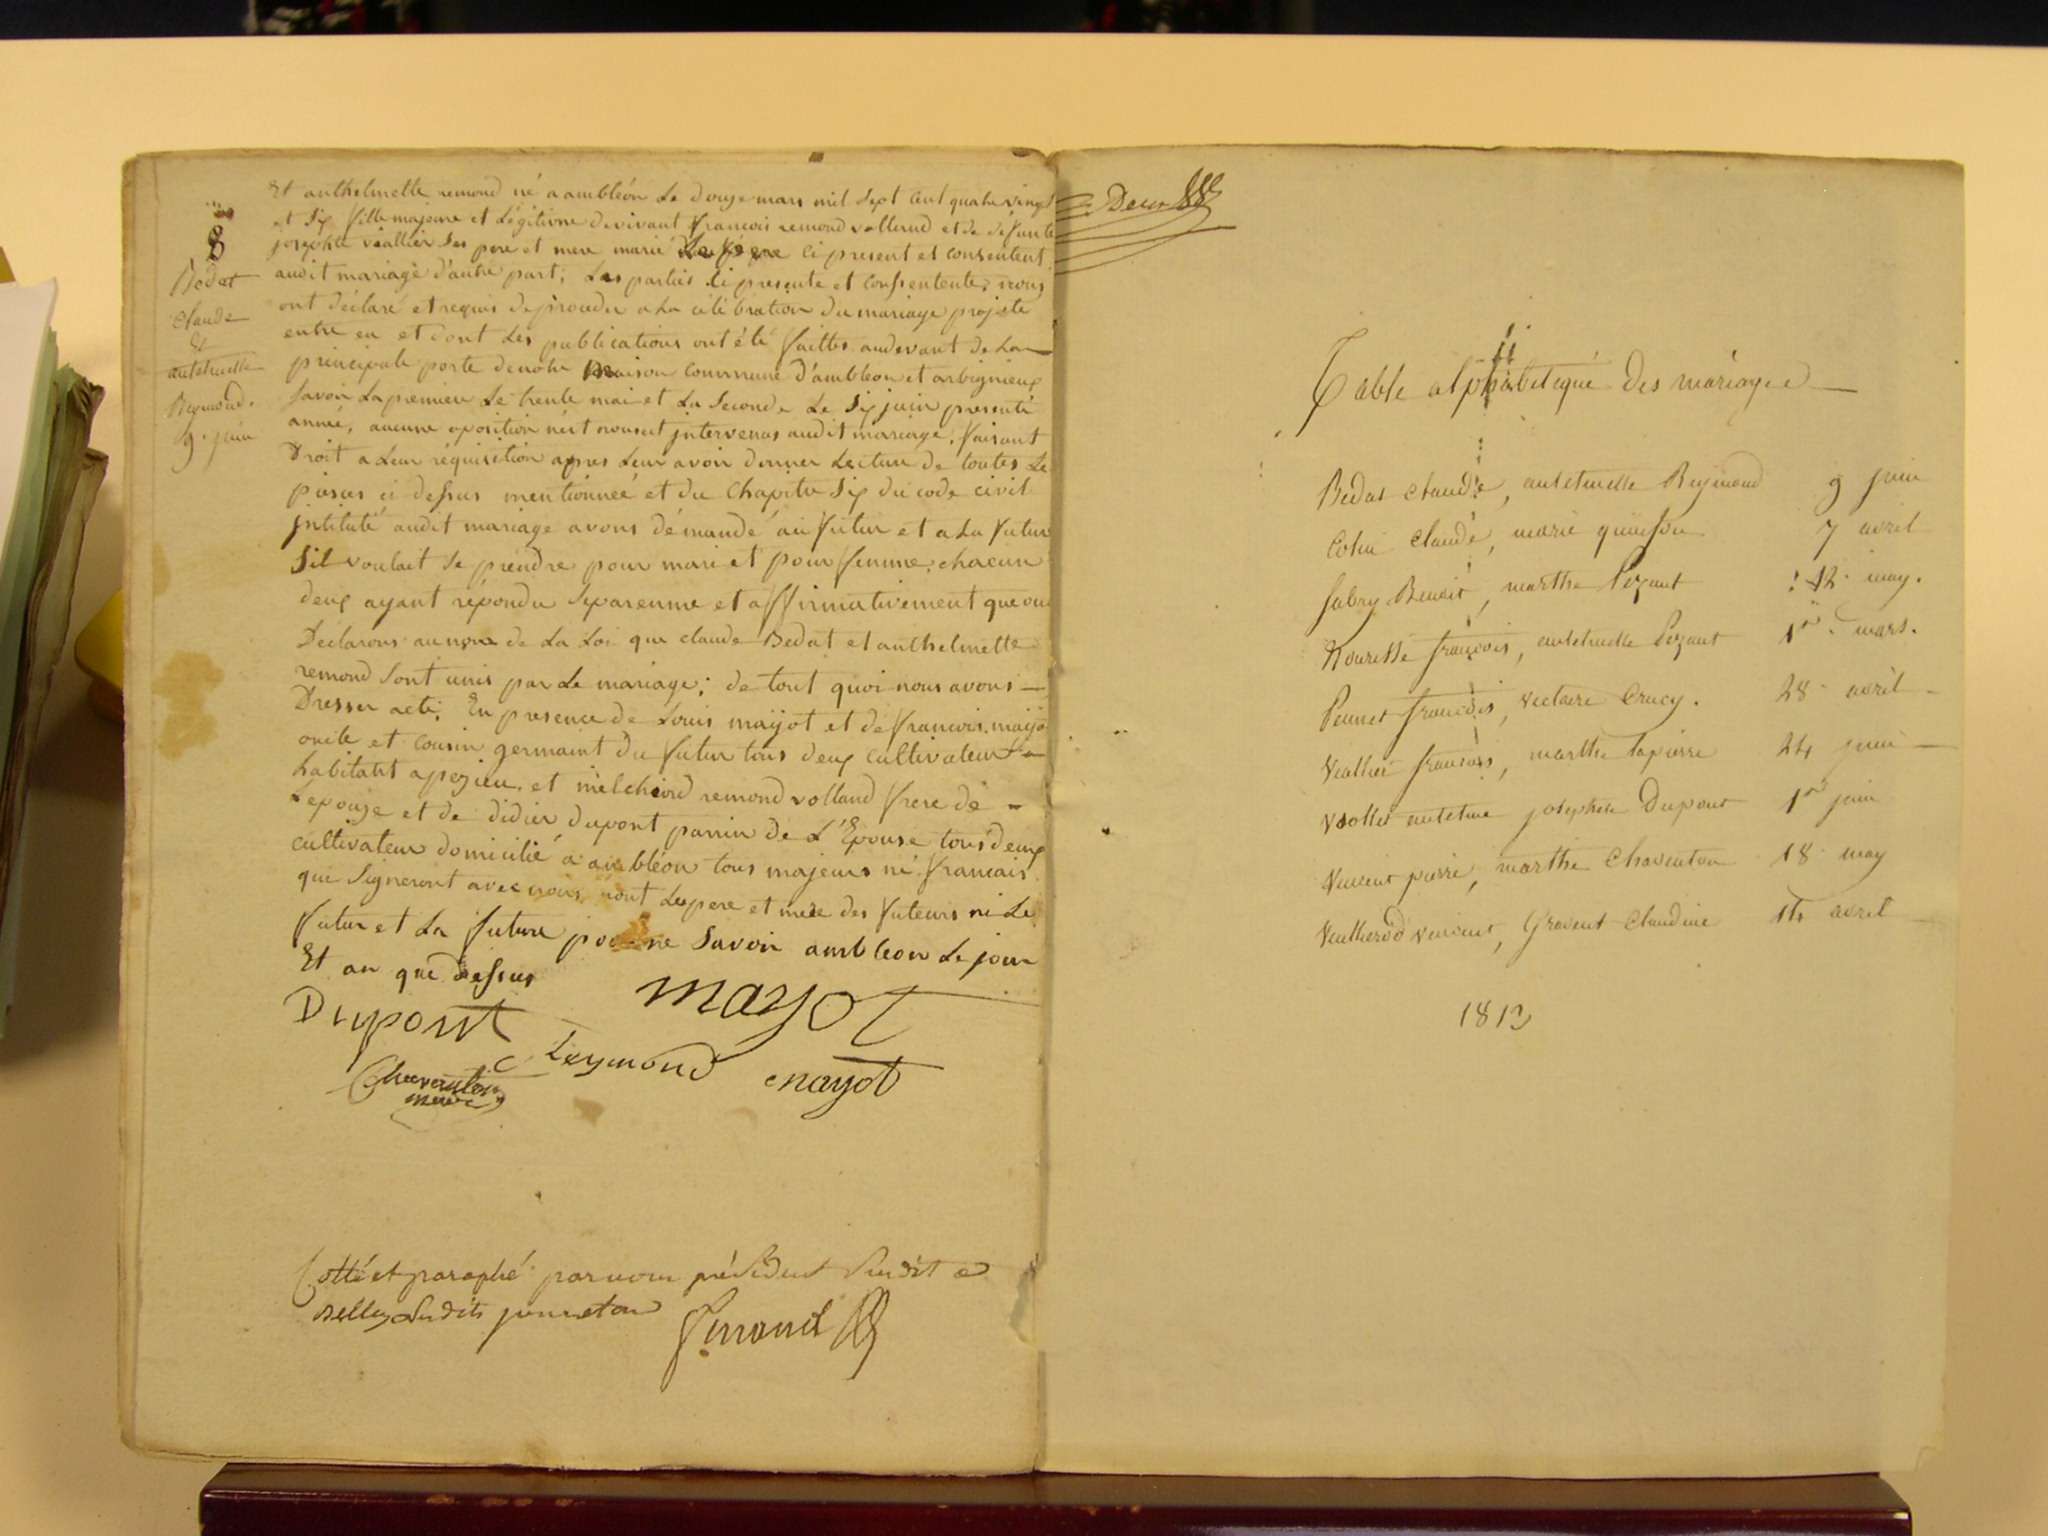 8
Bedat
Claude
et
antelmette
Reymond.
9. juin
Et anthelmette remond né a ambléon Le douze mars mil Sept Cent quatre vingt
et Six fille majeure et Légitime de vivant francois remond vollerud et de défunte
josephte viallier Ses pere et mere marié Le pere ci present et consentent
audit mariage d'autre part; Les parties ci presente et consentente, nous
ont déclaré et requis de proceder a La célébration du mariage projeté
entre eu et dont Les publications ont été faittes audevant de La
principale porte de notre maison commune d'ambleon et arbignieux
Savoir La premiere Le trente mai et La Seconde Le Six juin presente
année, aucune oposition nést nousest intervenus audit mariage, faisant
Droit a Leur réquisition apres Leur avoir donner Lecture de toutes Le
pieces ci dessus mentionneé et du Chapitre Six du code civil
intitulé audit mariage avons démandé au futur et a La futur
Sil voulait Se prendre pour mari et pour femme, chacun
deux ayant répondu Séparemme et affirmativement que ou
Déclarons au nom de La Loi que claude Bedat et anthelmette
remond Sont unis par Le mariage; de tout quoi nous avons
Dresser acte; En presence de Louis mayot et de francois mayo
oncle et cousin germaint du futur tous deux cultivateur
habitant a pezieu, et mélchiord remond volland frere de
Lepouze et de didier dupont parrin de L'Epouse tous deux
cultivateur domicilié a ambléon tous majeurs né francais
qui Signeront avec nous, nont Les pere et mere des futeurs ni Le
futur et La future pour ne Savoir ambleon Le jour
Et an que dessus
Dupont mayot
Reymond mayot
Chaventon
maire
Cotté et paraphé par nous président
Belley
Deux
Table alphabetique Des mariages
Bedat Claude, antelmette Reymond 9 juin
Colin Claude, marie quinson 7 avril
fabry Benoit, marthe Pezant 12 may.
Nourisse françois, antelmette Pezant 1er mars.
Peunet françois, Crucy. 28 avril
Viallier françois, marthe lapierre 24 juin
antelme josephte Dupont 1er juin
Vincent pierre, marthe Chaventon 18 may
vincent, Gravent Claudine avril
1813